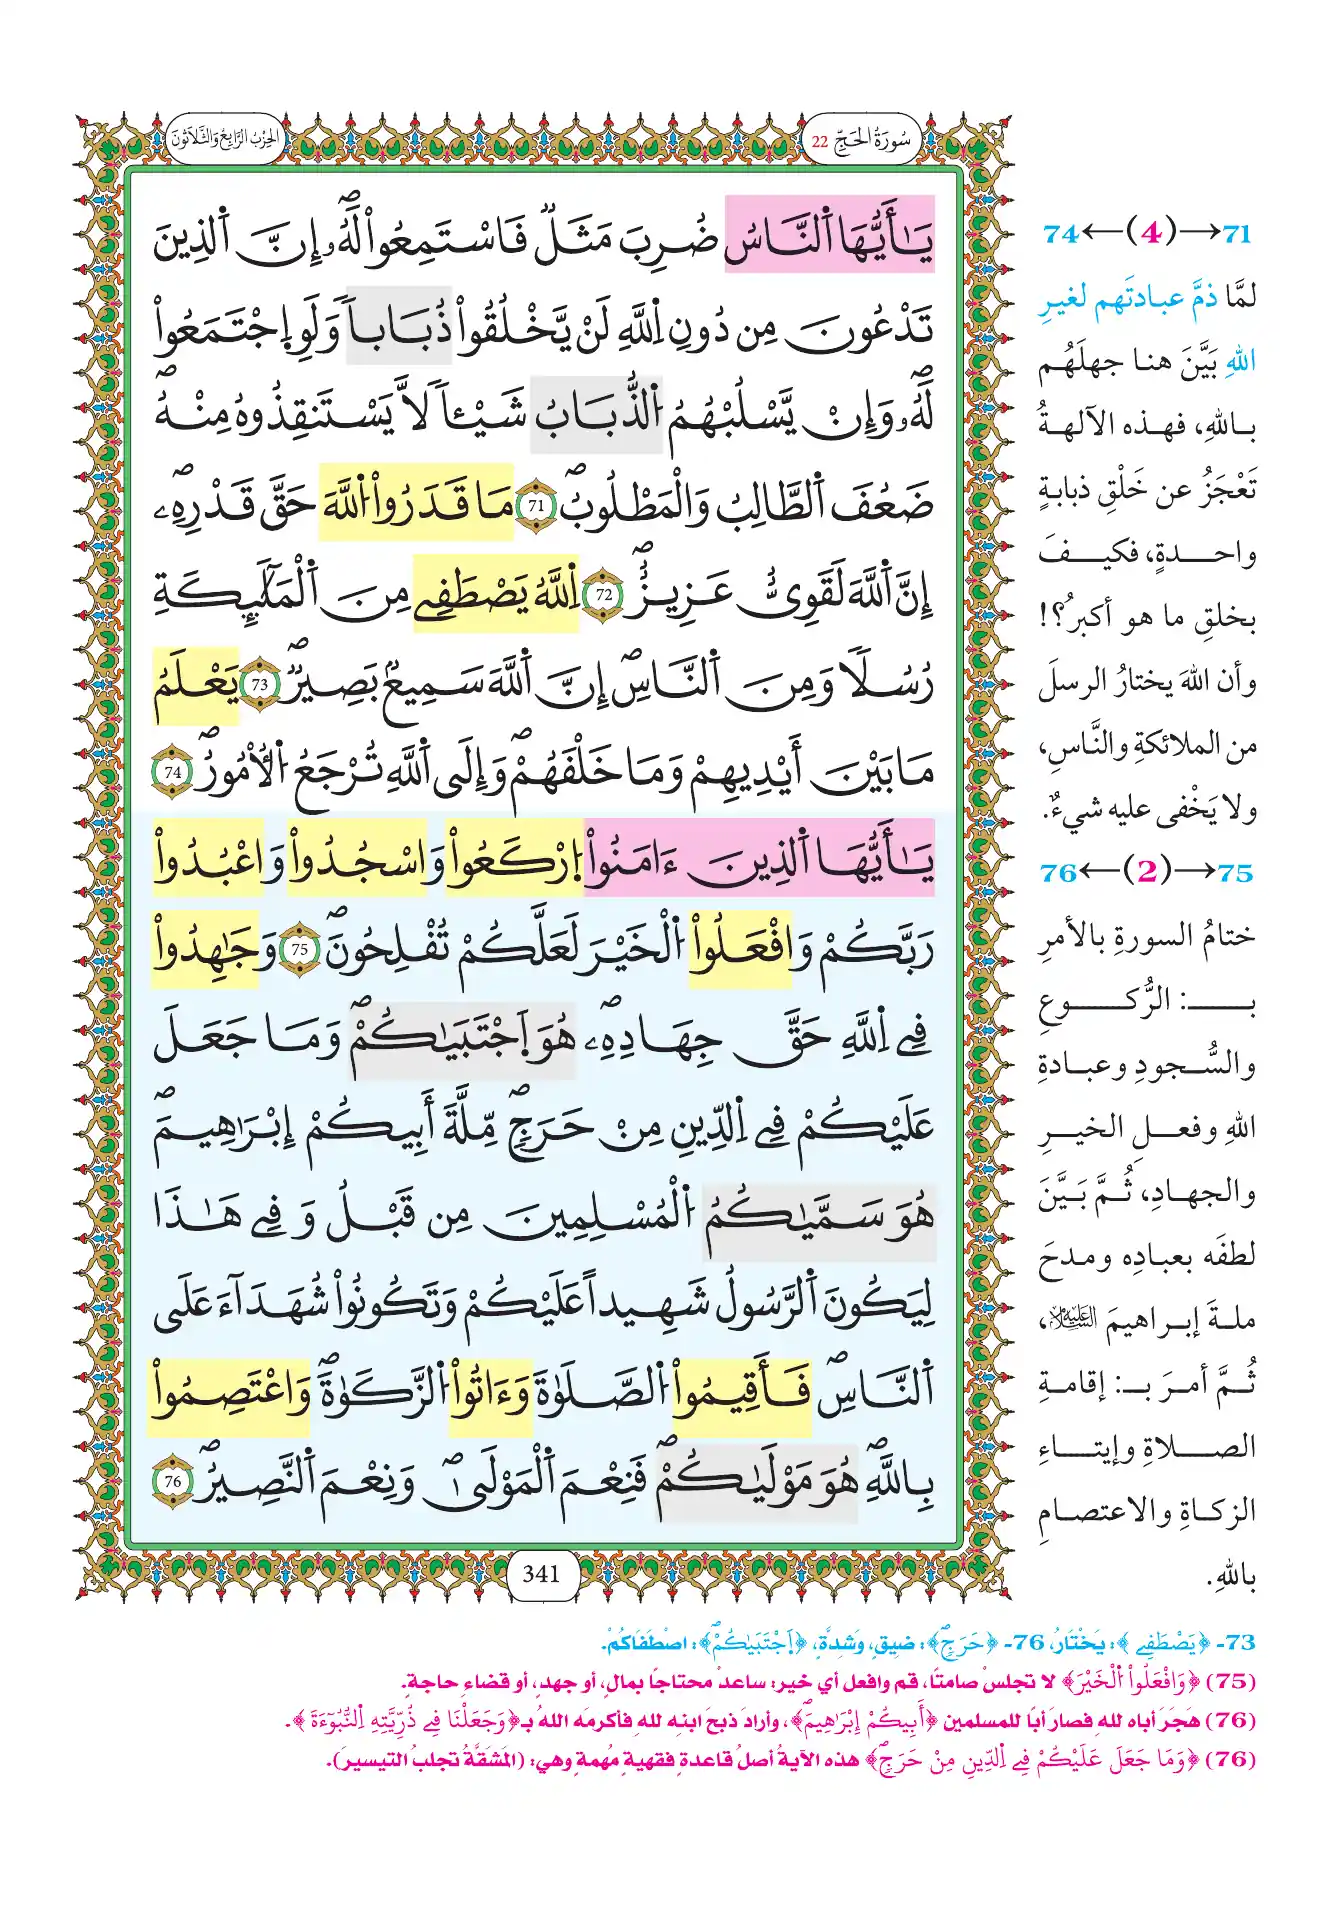 سُورَةُ الحَجِّ 22
الحِزْبُ الرَّابِعُ وَالثَّلَاثُونَ
يَـٰٓأَيُّهَا اَ۬لنَّاسُ ضُرِبَ مَثَلٞ فَاسْتَمِعُواْ لَهُۥٓۖ إِنَّ اَ۬لذِينَ
تَدْعُونَ مِن دُونِ اِ۬للَّهِ لَنْ يَّخْلُقُواْ ذُبَاباٗ وَلَوِ اِ۪جْتَمَعُواْ
لَهُۥۖ وَإِنْ يَّسْلُبْهُمُ اُ۬لذُّبَابُ شَيْـٔاٗ لَّا يَسْتَنقِذُوهُ مِنْهُۖ
ضَعُفَ اَ۬لطَّالِبُ وَالْمَطْلُوبُۖ 71 مَا قَدَرُواْ اُ۬للَّهَ حَقَّ قَدْرِهِۦٓۖ
إِنَّ اَ۬للَّهَ لَقَوِيٌّ عَزِيزٌۖ 72 اِ۬للَّهُ يَصْطَفِے مِنَ اَ۬لْمَلَٰٓئِكَةِ
رُسُلاٗ وَمِنَ اَ۬لنَّاسِۖ إِنَّ اَ۬للَّهَ سَمِيعُۢ بَصِيرٞۖ 73 يَعْلَمُ
مَا بَيْنَ أَيْدِيهِمْ وَمَا خَلْفَهُمْۖ وَإِلَى اَ۬للَّهِ تُرْجَعُ اُ۬لْأُمُورُۖ 74
يَـٰٓأَيُّهَا اَ۬لذِينَ ءَامَنُواْ اُ۪رْكَعُواْ وَاسْجُدُواْ وَاعْبُدُواْ
رَبَّكُمْ وَافْعَلُواْ اُ۬لْخَيْرَ لَعَلَّكُمْ تُفْلِحُونَۖ 75 وَجَٰهِدُواْ
فِے اِ۬للَّهِ حَقَّ جِهَادِهِۦۖ هُوَ اَ۪جْتَبَيٰكُمْۖ وَمَا جَعَلَ
عَلَيْكُمْ فِے اِ۬لدِّينِ مِنْ حَرَجٖۖ مِّلَّةَ أَبِيكُمْ إِبْرَٰهِيمَۖ
هُوَ سَمَّيٰكُمُ اُ۬لْمُسْلِمِينَ مِن قَبْلُ وَفِے هَٰذَا
لِيَكُونَ اَ۬لرَّسُولُ شَهِيداً عَلَيْكُمْ وَتَكُونُواْ شُهَدَآءَ عَلَى
اَ۬لنَّاسِۖ فَأَقِيمُواْ اُ۬لصَّلَوٰةَ وَءَاتُواْ اُ۬لزَّكَوٰةَۖ وَاعْتَصِمُواْ
بِاللَّهِۖ هُوَ مَوْلَيٰكُمْۖ فَنِعْمَ اَ۬لْمَوْلَىٰۖ وَنِعْمَ اَ۬لنَّصِيرُۖ 76
341
71→(4)←74
لمَّا ذمَّ عبادتَهم لغيرِ
اللهِ بَيَّنَ هنا جهلَهُم
باللهِ، فهذه الآلهةُ
تَعْجَزُ عن خَلْقِ ذبابةٍ
واحدةٍ، فكيفَ
بخلقِ ما هو أكبرُ؟!
وأن اللهَ يختارُ الرسلَ
من الملائكةِ والنَّاسِ،
ولا يَخْفى عليه شيءٌ.
75→(2)←76
ختامُ السورةِ بالأمرِ
بـ: الرُّكوعِ
والسُّجودِ وعبادةِ
اللهِ وفعلِ الخيرِ
والجهادِ، ثُمَّ بَيَّنَ
لطفَه بعبادِه ومدحَ
ملةَ إبراهيمَ عليه السلام،
ثُمَّ أمرَ بـ: إقامةِ
الصلاةِ وإيتاءِ
الزكاةِ والاعتصامِ
باللهِ.
73- ﴿يَصْطَفِے﴾: يَخْتَارُ، 76- ﴿حَرَجٖۖ﴾: ضيقٍ، وَشدةٍ، ﴿اَ۪جْتَبَيٰكُمْۖ﴾: اصْطَفَاكُمْ.
(75) ﴿وَافْعَلُواْ اُ۬لْخَيْرَ﴾ لا تجلسْ صامتًا، قم وافعل أي خير: ساعدْ محتاجًا بمالٍ، أو جهدٍ، أو قضاءِ حاجةٍ.
(76) هَجَرَ أباه للهِ فصارَ أبًا للمسلمين ﴿أَبِيكُمْ إِبْرَٰهِيمَۖ﴾، وأرادَ ذبحَ ابنِه للهِ فأكرمَه اللهُ بـ﴿وَجَعَلْنَا فِے ذُرِّيَّتِهِ اِ۬لنُّبُوٓءَةَ﴾.
(76) ﴿وَمَا جَعَلَ عَلَيْكُمْ فِے اِ۬لدِّينِ مِنْ حَرَجٖۖ﴾ هذه الآيةُ أصلُ قاعدةٍ فقهيةٍ مُهمةٍ وهي: (المَشقَّةُ تجلبُ التيسيرَ).